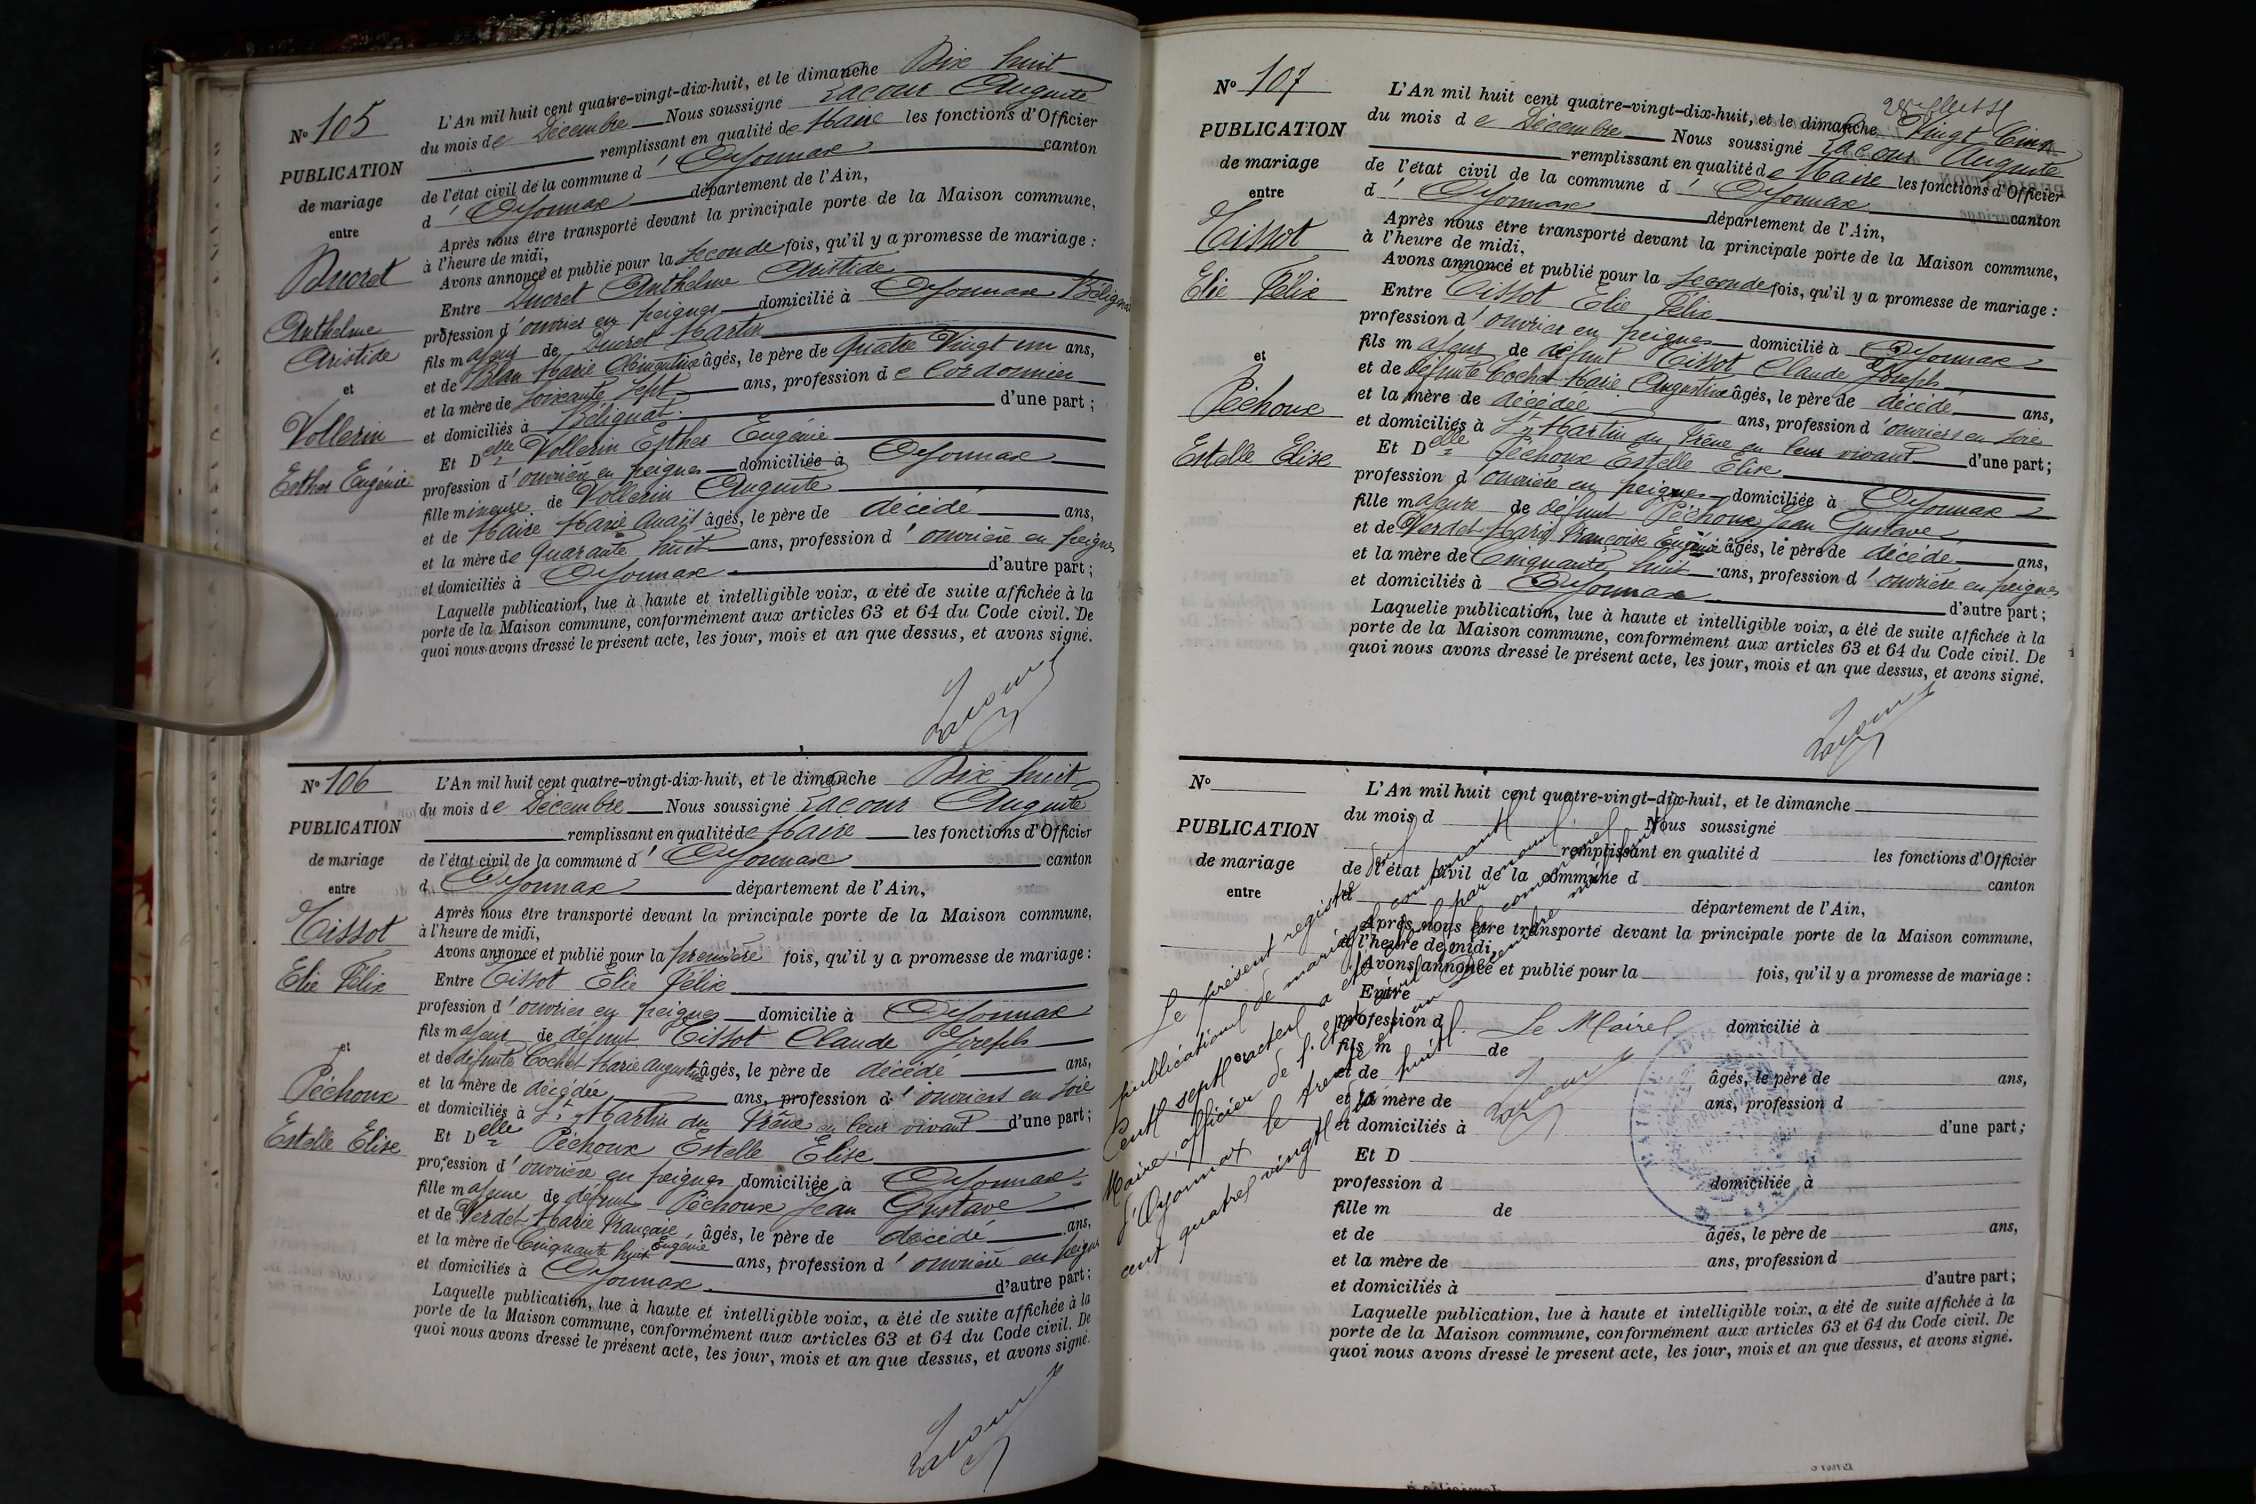 N° 105
PUBLICATION
de mariage
entre
Ducret
Anthelme
Aristide
et
Vollerin
Esther Eugénie
L'An mil huit cent quatre-vingt-dix-huit, et le dimanche Dix huit
du mois de Décembre Nous soussigné Lacour Auguste
remplissant en qualité de Maire les fonctions d'Officier
de l'état civil de la commune d'Oyonnax canton
d'Oyonnax département de l'Ain,
Après nous être transporté devant la principale porte de la Maison commune,
à l'heure de midi,
Avons annoncé et publié pour la seconde fois, qu'il y a promesse de mariage :
Entre Ducret Anthelme Aristide
profession d'ouvrier en peignes domicilié à Oyonnax Bélignat
fils majeur de Ducret Martin
et de Blan Marie Clémentine âgés, le père de quatre Vingt un ans,
et la mère de soixante sept ans, profession de Cordonnier
et domiciliés à Bélignat. d'une part ;
Et Delle Vollerin Esther Eugénie
profession d'ouvrière en peignes domiciliée à Oyonnax
fille mineure de Vollerin Auguste
et de Maire Marie Anaïs âgés, le père de décédé ans,
et la mère de quarante huit ans, profession d'ouvrière en peignes
et domiciliés à Oyonnax d'autre part ;
Laquelle publication, lue à haute et intelligible voix, a été de suite affichée à la
porte de la Maison commune, conformément aux articles 63 et 64 du Code civil. De
quoi nous avons dressé le présent acte, les jour, mois et an que dessus, et avons signé.
Lacour
N° 106
PUBLICATION
de mariage
entre
Tissot
Elie Félix
et
Péchoux
Estelle Elise
L'An mil huit cent quatre-vingt-dix-huit, et le dimanche Dix huit
du mois de Décembre Nous soussigné Lacour Auguste
remplissant en qualité de Maire les fonctions d'Officier
de l'état civil de la commune d'Oyonnax canton
d'Oyonnax département de l'Ain,
Après nous être transporté devant la principale porte de la Maison commune,
à l'heure de midi,
Avons annoncé et publié pour la première fois, qu'il y a promesse de mariage :
Entre Tissot Elie Félix
profession d'ouvrier en peignes domicilié à Oyonnax
fils majeur de défunt Tissot Claude Joseph
et de défunte Cochet Marie Augustine âgés, le père de décédé ans,
et la mère de décédée ans, profession d'ouvriers en soie
et domiciliés à St Martin du Frêne en leur vivant d'une part ;
Et Delle Péchoux Estelle Elise
profession d'ouvrière en peignes domiciliée à Oyonnax
fille majeure de défunt Péchoux Jean Gustave
et de Verdet Marie Françoise Eugénie âgés, le père de décédé ans,
et la mère de Cinquante huit ans, profession d'ouvrière en peignes
et domiciliés à Oyonnax. d'autre part ;
Laquelle publication, lue à haute et intelligible voix, a été de suite affichée à la
porte de la Maison commune, conformément aux articles 63 et 64 du Code civil. De
quoi nous avons dressé le présent acte, les jour, mois et an que dessus, et avons signé.
Lacour
N° 107
PUBLICATION
de mariage
entre
Tissot
Elie Félix
et
Péchoux
Estelle Elise
L'An mil huit cent quatre-vingt-dix-huit, et le dimanche Vingt Cinq
du mois de Décembre Nous soussigné Lacour Auguste
remplissant en qualité de Maire les fonctions d'Officier
de l'état civil de la commune d'Oyonnax canton
d'Oyonnax département de l'Ain,
Après nous être transporté devant la principale porte de la Maison commune,
à l'heure de midi,
Avons annoncé et publié pour la seconde fois, qu'il y a promesse de mariage :
Entre Tissot Elie Félix
profession d'ouvrier en peignes domicilié à Oyonnax
fils majeur de défunt Tissot Claude Joseph
et de défunte Cochet Marie Augustine âgés, le père de décédé ans,
et la mère de décédée ans, profession d'ouvriers en soie
et domiciliés à St Martin du Frêne en leur vivant d'une part ;
Et Delle Péchoux Estelle Elise
profession d'ouvrière en peignes domiciliée à Oyonnax
fille majeure de défunt Péchoux Jean Gustave
et de Verdet Marie Françoise Eugénie âgés, le père de décédé ans,
et la mère de Cinquante huit ans, profession d'ouvrière en peignes
et domiciliés à Oyonnax d'autre part ;
Laquelle publication, lue à haute et intelligible voix, a été de suite affichée à la
porte de la Maison commune, conformément aux articles 63 et 64 du Code civil. De
quoi nous avons dressé le présent acte, les jour, mois et an que dessus, et avons signé.
Lacour
N°
PUBLICATION
de mariage
entre
L'An mil huit cent quatre-vingt-dix-huit, et le dimanche
du mois d Nous soussigné
remplissant en qualité d les fonctions d'Officier
de l'état civil de la commune d canton
d département de l'Ain,
Après nous être transporté devant la principale porte de la Maison commune,
à l'heure de midi,
Avons annoncé et publié pour la fois, qu'il y a promesse de mariage :
Entre
profession d domicilié à
fils m de
et de âgés, le père de ans,
et la mère de ans, profession d
et domiciliés à d'une part ;
Et D
profession d domiciliée à
fille m de
et de âgés, le père de ans,
et la mère de ans, profession d
et domiciliés à d'autre part ;
Laquelle publication, lue à haute et intelligible voix, a été de suite affichée à la
porte de la Maison commune, conformément aux articles 63 et 64 du Code civil. De
quoi nous avons dressé le présent acte, les jour, mois et an que dessus, et avons signé.
Le présent registre des
publications de mariage contenant
Cent sept actes a été clos par nous
Maire, officier de l'Etat civil de la commune
d'Oyonnax le trente un Décembre mil huit
cent quatre vingt dix huit.
Le Maire
Lacour